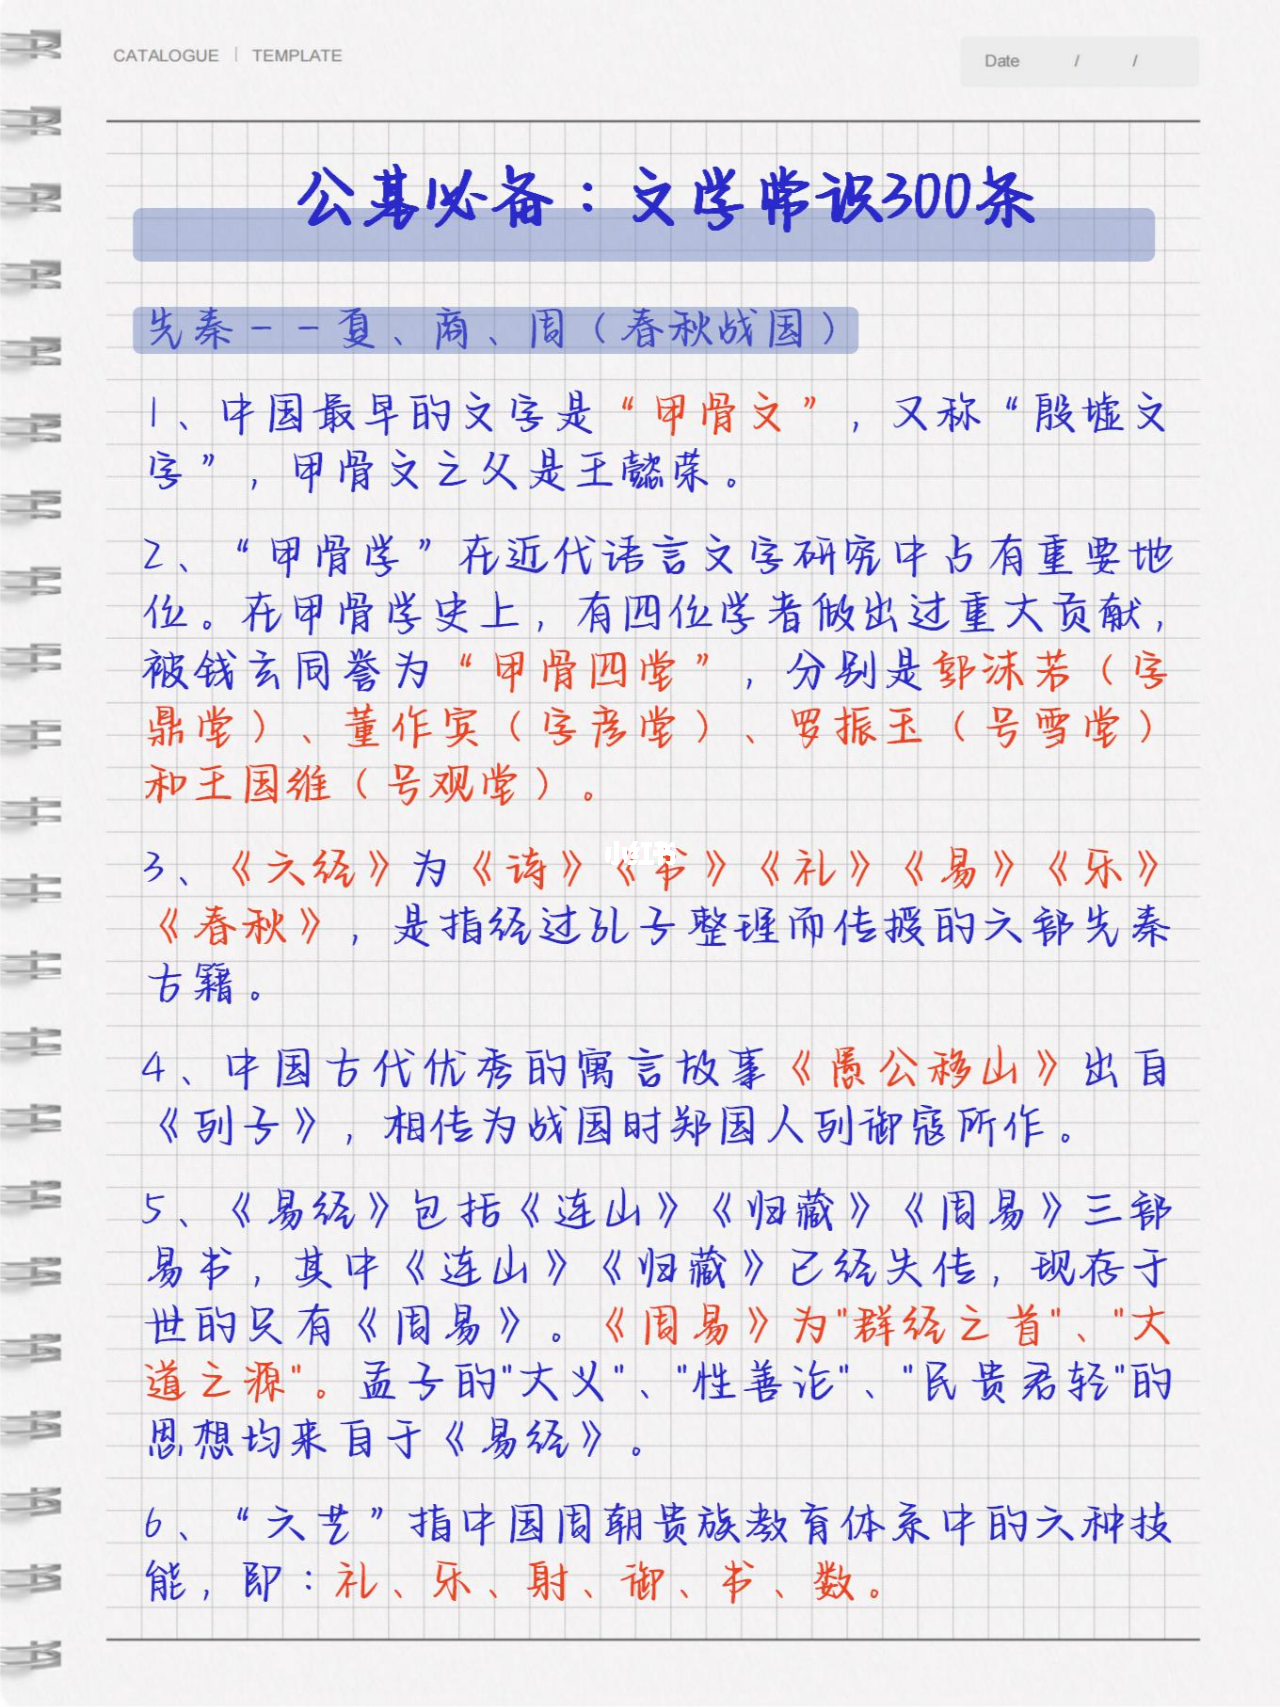 CATALOGUE | TEMPLATE
Date / /
公基必备：文学常识300条
先秦--夏、商、周（春秋战国）
1、中国最早的文字是“甲骨文”，又称“殷墟文
字”，甲骨文之父是王懿荣。
2、“甲骨学”在近代语言文字研究中占有重要地
位。在甲骨学史上，有四位学者做出过重大贡献，
被钱玄同誉为“甲骨四堂”，分别是郭沫若（字
鼎堂）、董作宾（字彦堂）、罗振玉（号雪堂）
和王国维（号观堂）。
小红书
3、《六经》为《诗》《书》《礼》《易》《乐》
《春秋》，是指经过孔子整理而传授的六部先秦
古籍。
4、中国古代优秀的寓言故事《愚公移山》出自
《列子》，相传为战国时郑国人列御寇所作。
5、《易经》包括《连山》《归藏》《周易》三部
易书，其中《连山》《归藏》已经失传，现存于
世的只有《周易》。《周易》为"群经之首"、"大
道之源"。孟子的"大义"、"性善论"、"民贵君轻"的
思想均来自于《易经》。
6、“六艺”指中国周朝贵族教育体系中的六种技
能，即：礼、乐、射、御、书、数。